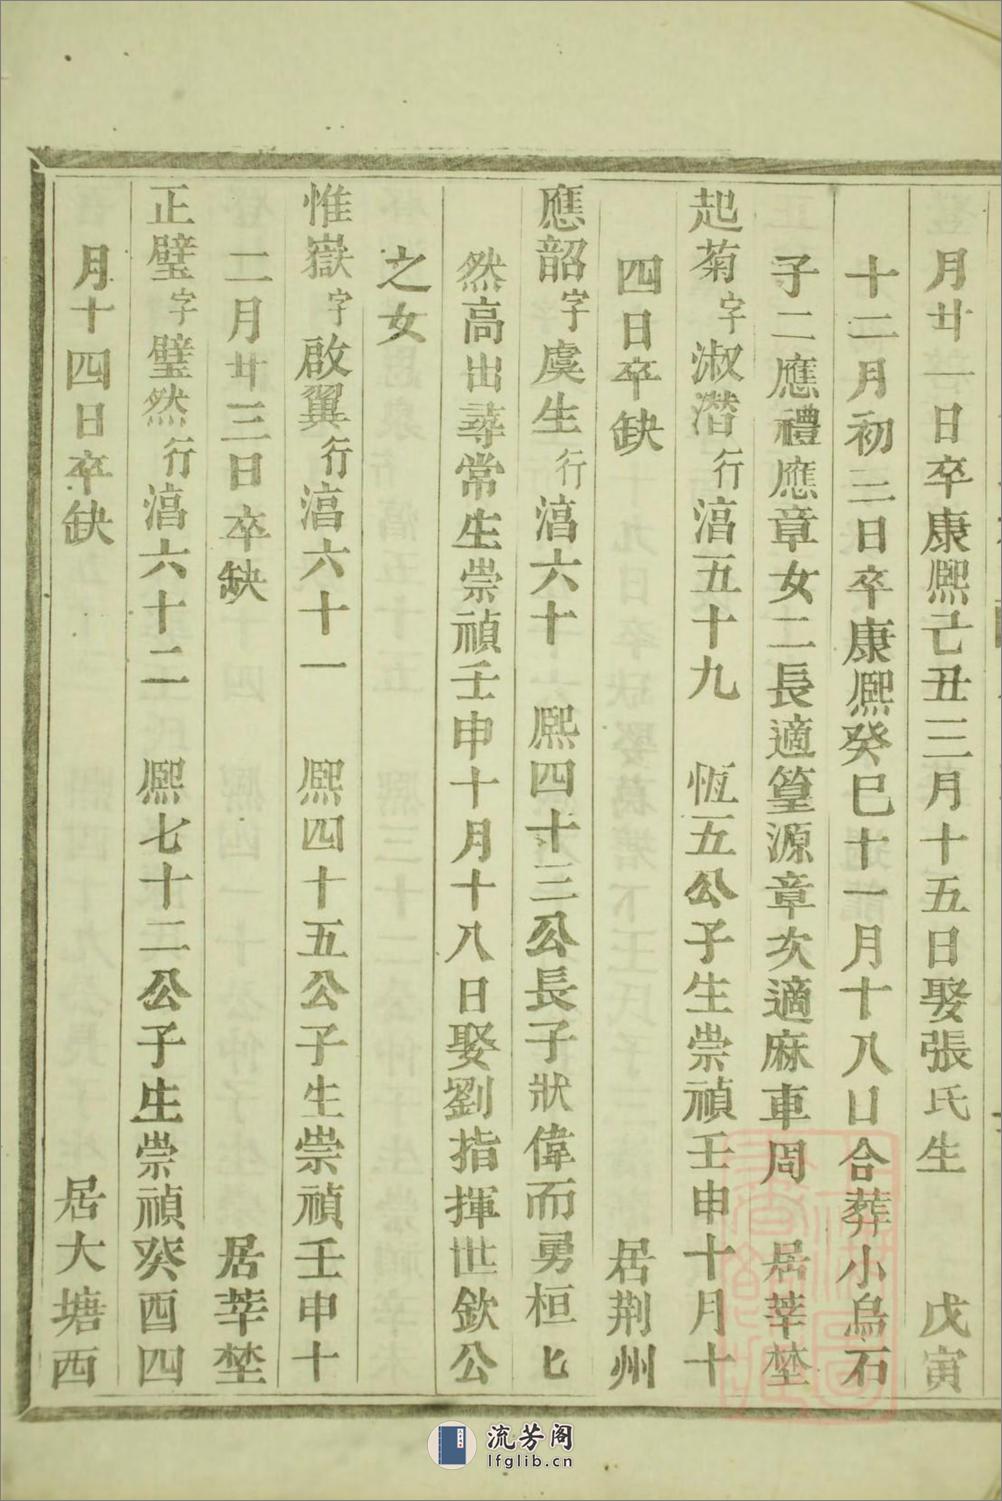 月廿一日卒康熙己丑三月十五日娶張氏生 戊寅
十二月初三日卒康熙癸巳十一月十八日合葬小烏石
子二應禮應章女二長適篁源章次適麻車周 居莘埜
起菊字淑潛行滈五十九 恆五公子生崇禎壬申十月十
四日卒缺 居荆州
應韶字虞生行滈六十 熙四十三公長子狀偉而勇桓七
然高出尋常生崇禎壬申十月十八日娶劉指揮世欽公
之女
惟嶽字啟翼行滈六十一 熙四十五公子生崇禎壬申十
二月廿三日卒缺 居莘埜
正璧字璧然行滈六十二 熙七十二公子生崇禎癸酉四
月十四日卒缺 居大塘西
流芳阁
lfglib.cn